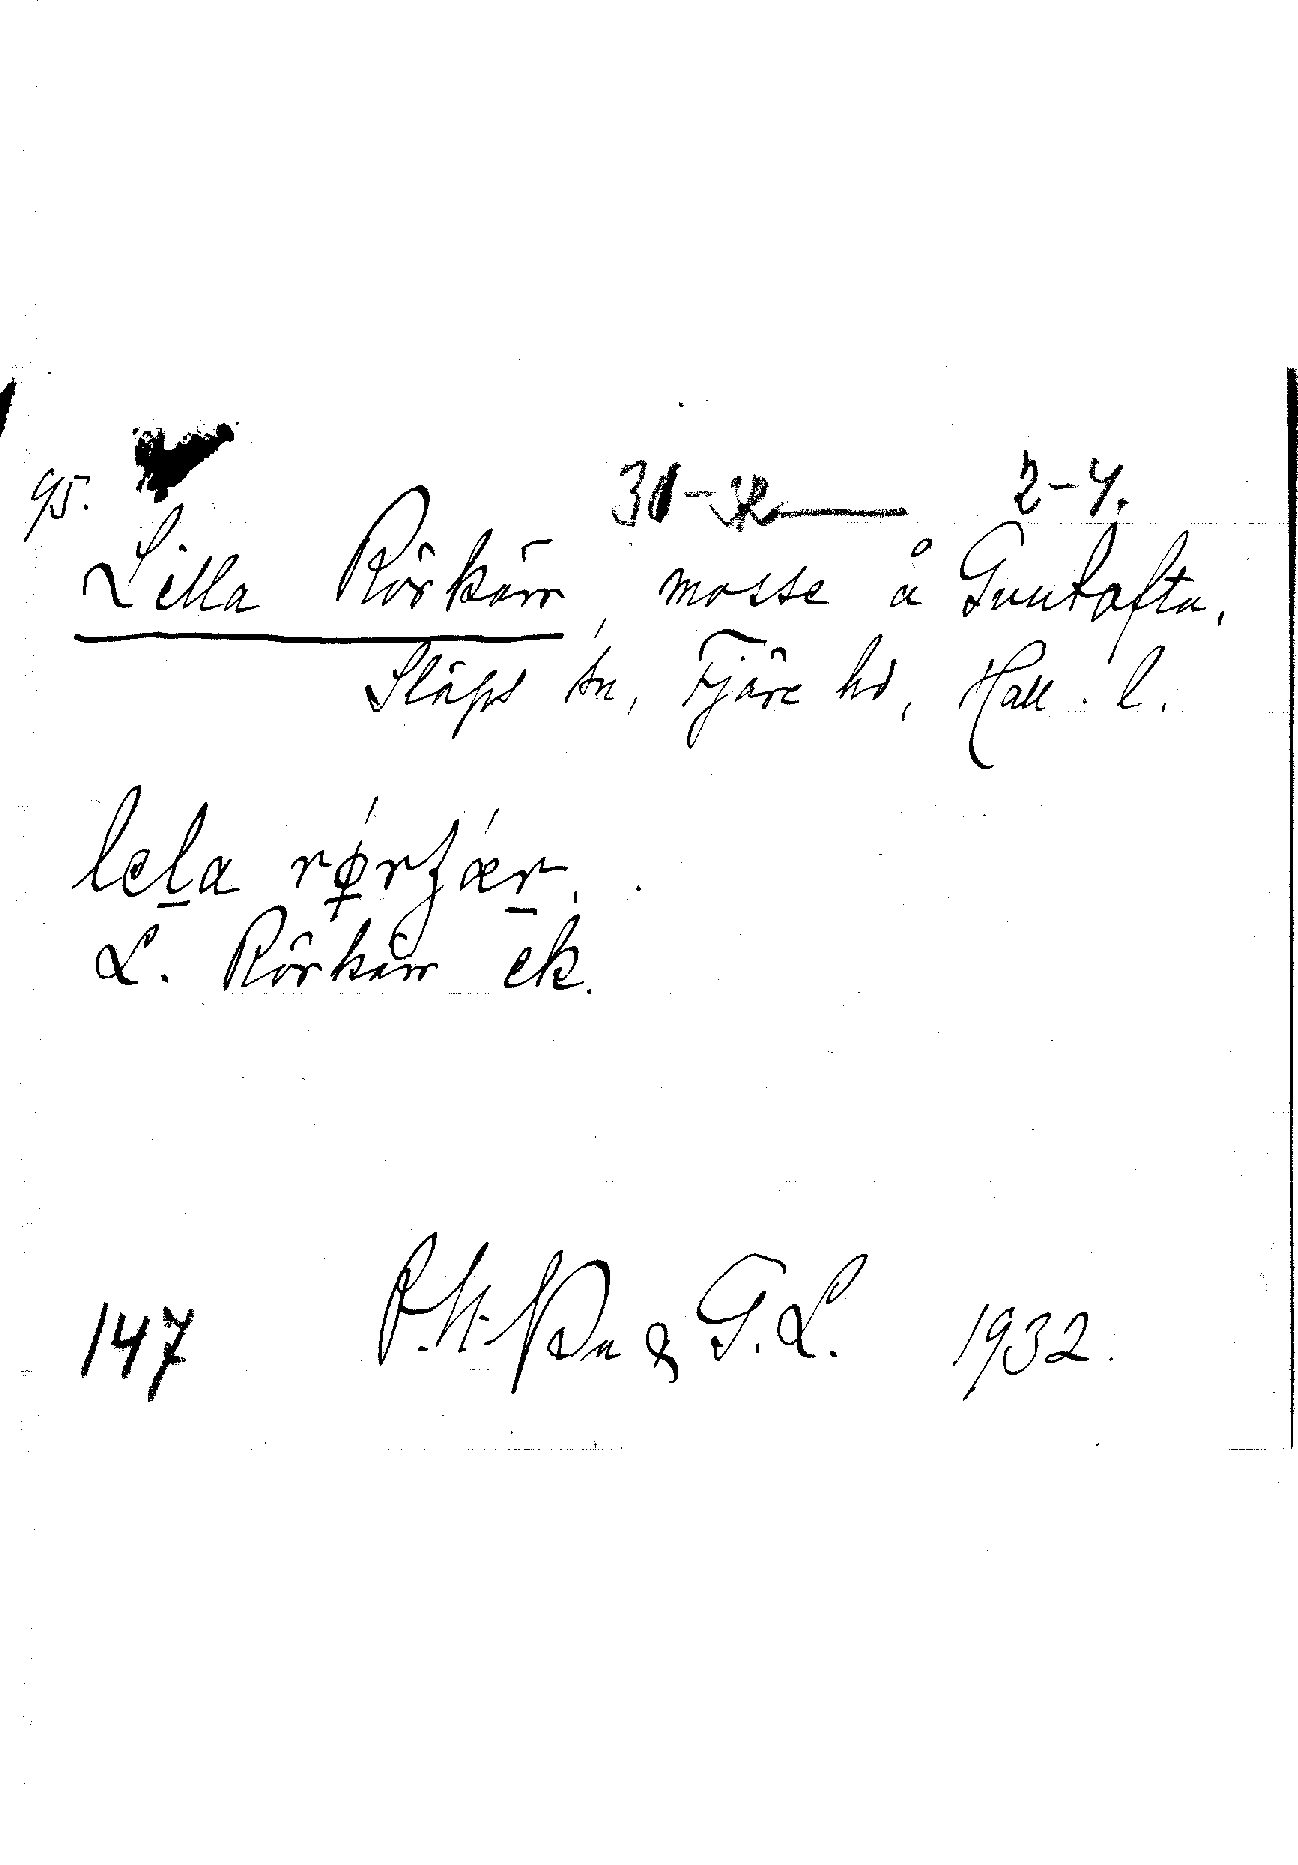 95.
2-4.
Lilla Rörkärr, mosse å
Släps sn, Fjäre hd, Hall. l.
lela rǿrʒǽr.
L. Rörkärr ek.
147 & G. L. 1932.